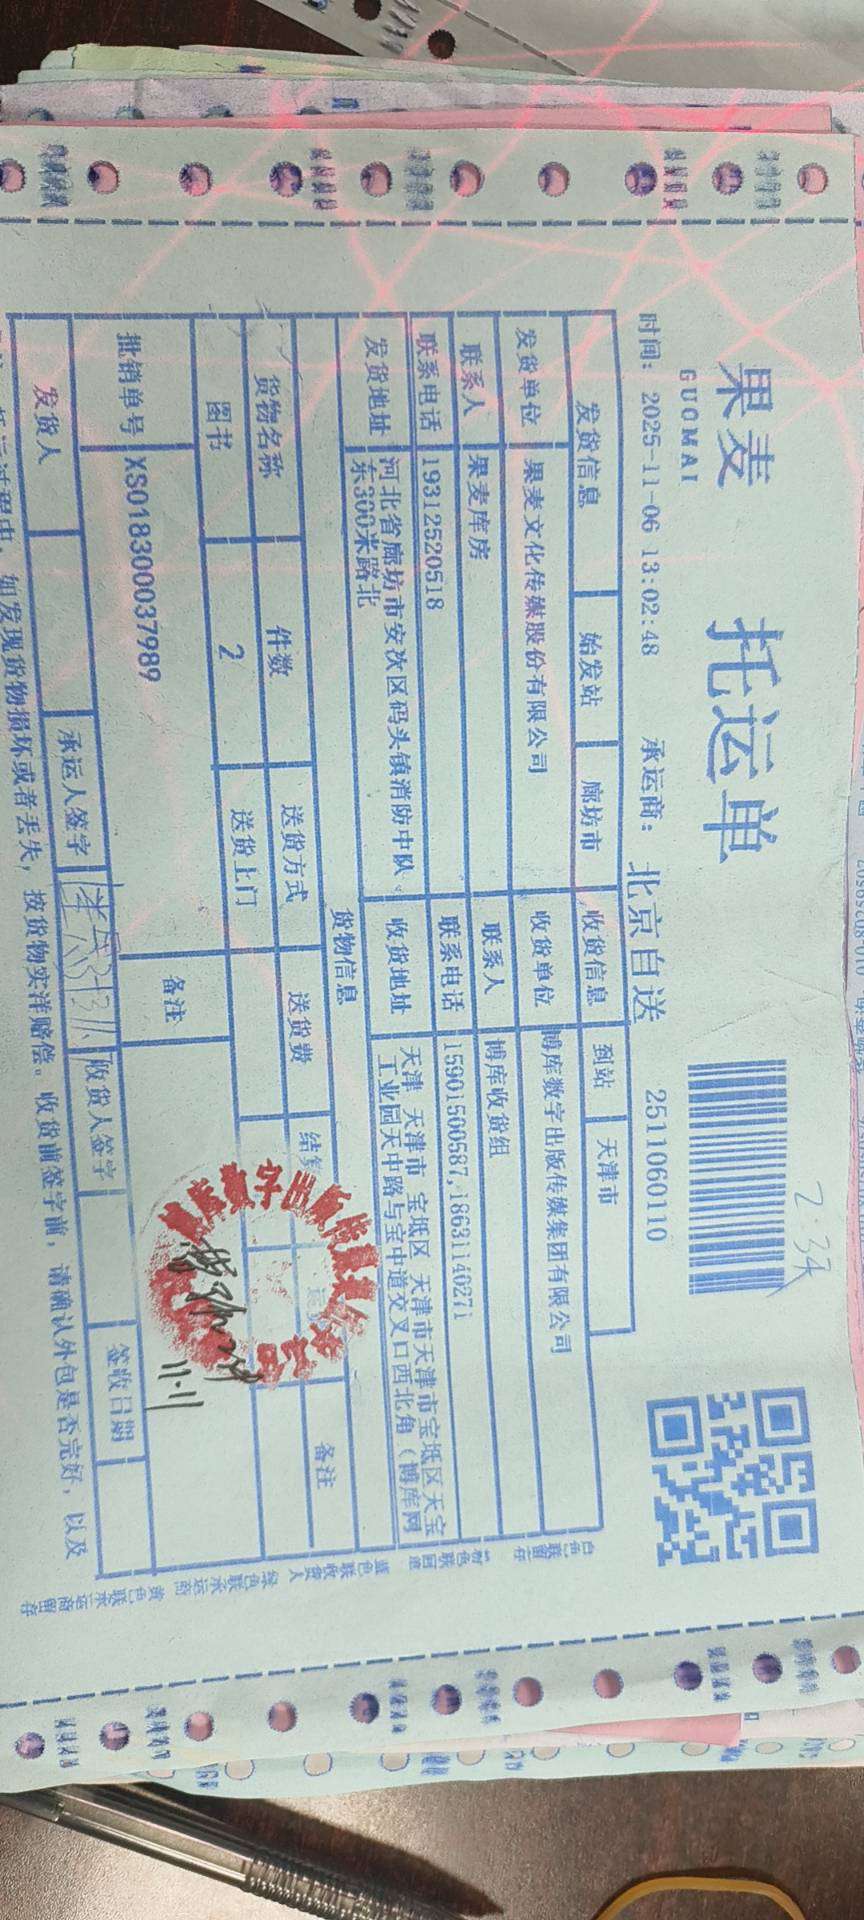 果麦
GUOMAI
托运单
2:34
时间: 2025-11-06 13:02:48 承运商: 北京自送 2511060110
发货信息 始发站 廊坊市 收货信息 到站 天津市
发货单位 果麦文化传媒股份有限公司 收货单位 博库数字出版传媒集团有限公司
联系人 果麦库房 联系人 博库收货组
联系电话 19312520518 联系电话 15901500587,18631140271
发货地址 河北省廊坊市安次区码头镇消防中队东300米路北 收货地址 天津 天津市 宝坻区 天津市天津市宝坻区天宝工业园天中路与宝中道交叉口西北角（博库网
货物信息
货物名称 件数 送货方式 送货费 备注
图书 2 送货上门
批销单号 XS018300037989 备注
11.11
发货人 承运人签字 收货人签字 签收日期
如发现货物损坏或者丢失，按货物实洋赔偿。收货前签字前，请确认外包是否完好，以及